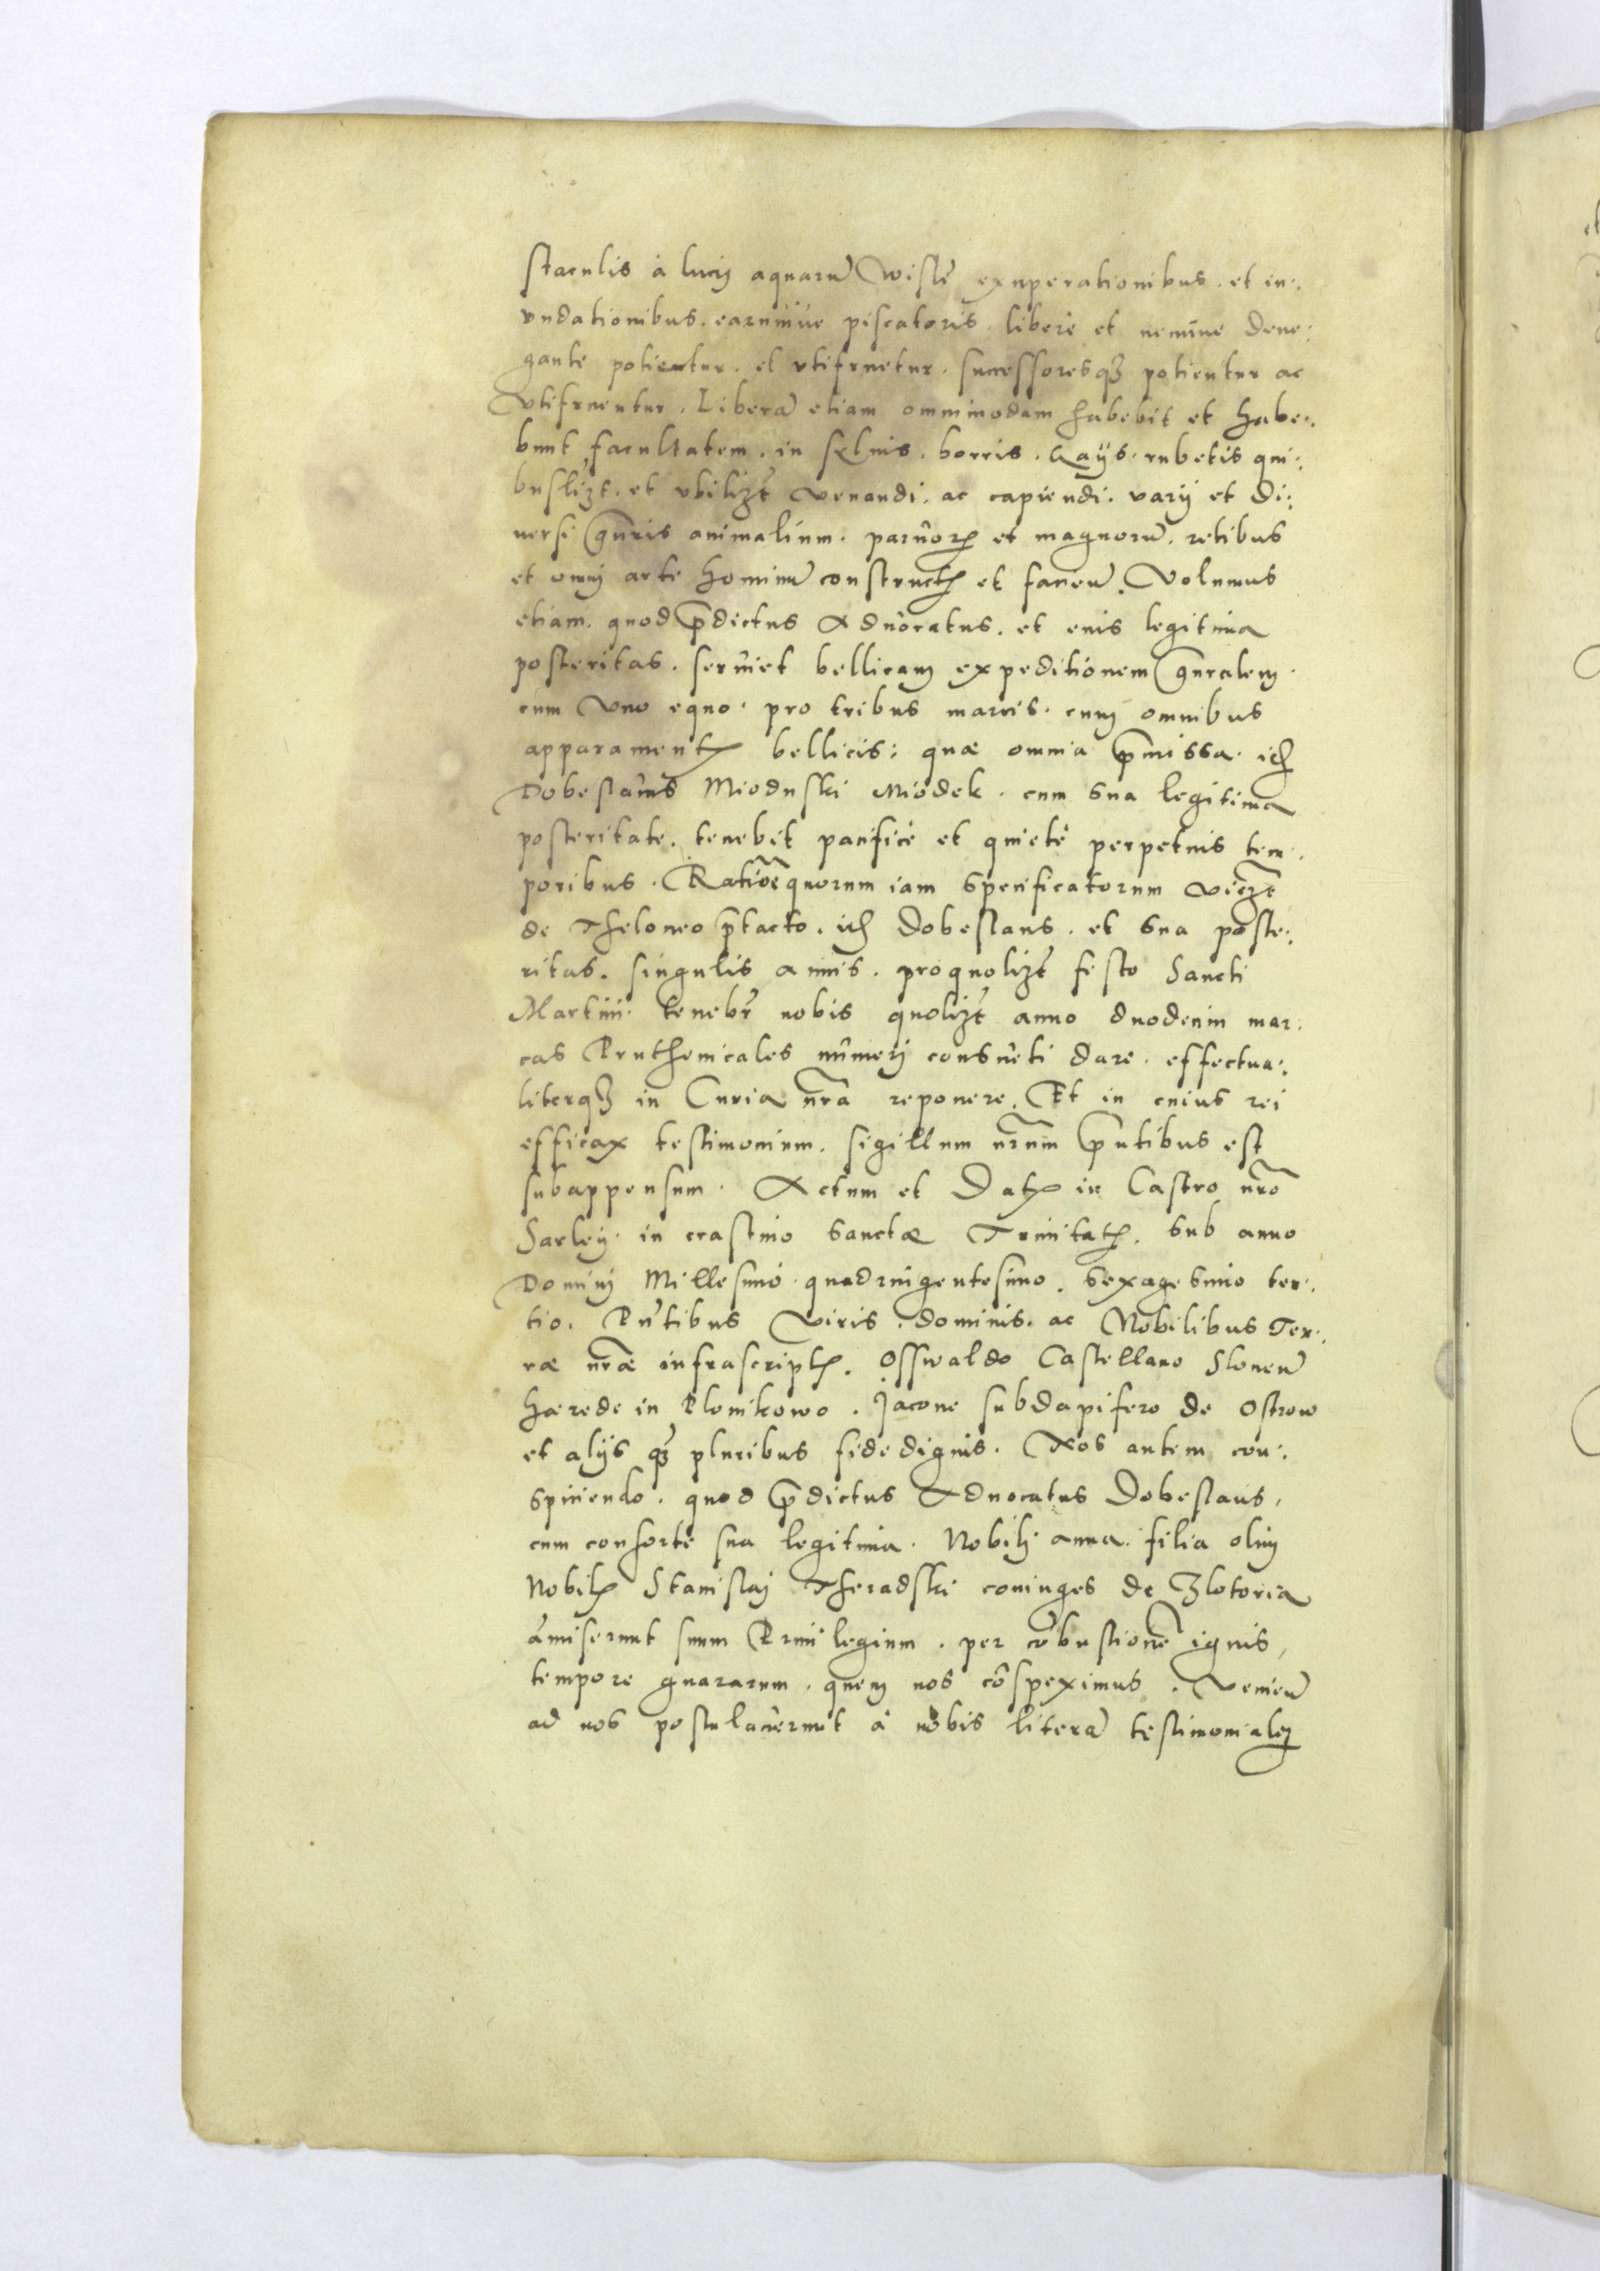 staculis à lucij aquarũ Wislẽ exuperationibus. et in:
undationibus. earumue piscatoris. liberè et nemine dene:
gante potietur. et utifruetur. successoresq3 potientur ac
Utifruentur. Liberã etiam ommimodam habebit et habe:
bunt facultatem. in syluis. borris. Gaijs. rubetis qui:
buslizt. et ubilizt venandi. ac capiendi. varij et di:
uersi gnris animalium. paruorꝝ et magnorũ. retibus
et omni arte hominũ constructꝭ et faceñ. Volumus
etiam. quod p̃dictus Aduocatus. et eius legitima
posteritas. seruiet bellicam expeditionem gnralem.
cum Uno equo. pro tribus marcis. cum omnibus
apparamentꝭ bellicis: quæ omnia p̃missa. idẽ
Dobeslaus Mioduski Miodek. cum sua legitima
posteritate. tenebit pacificè et quietè perpetuis tem:
poribus. Ratiõe quorum iam specificatorum viczt
de Theloneo p̃tacto. idẽ Dobeslaus. et sua poste:
ritas. singulis annis. pro quolizt festo Sancti
Martini. tenebr̃ nobis quolizt anno duodecim mar:
cas Pruthenicales numeri consueti dare. effectua:
literq3 in Curia nr̃a reponere. Et in cuius rei
efficax testimonium. sigillum nr̃um p̃ntibus est
subappensum. Actum et Datꝭ in Castro nr̃o
Sarley. in crastino Sanctæ Trinitatꝭ. sub anno
Domini Millesimo. quadringentesimo. sexagesimo ter:
tio. Pñtibus Viris. dominis. ac Nobilibus Ter:
ræ nr̃æ infrascriptꝭ. Osswaldo Castellano Sloneñ
hærede in Plomkowo. Jacone subdapifero de Ostrow
et alijs q3 pluribus fidedignis. Nos autem con:
spiciendo. quod p̃dictus Aduocatus Dobeslaus,
cum consorte sua legitima. Nobili anna. filia olim
Nobilꝭ Stanislaj Theradski coniuges de Zlotoria
amiserunt suum Priuilegium. per cõbustionẽ ignis,
tempore guararum. quem nos cõspeximus. Venieñ
ad nos postulauerunt à nobis literã testimonialem